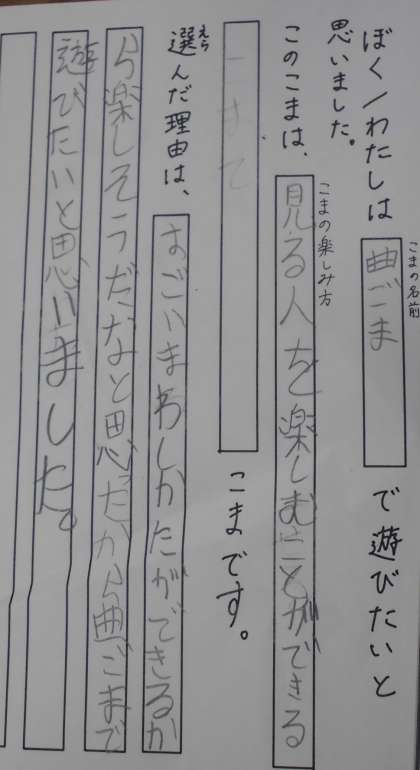 こまの名前
ぼく/わたしは 曲ごま で遊びたいと
思いました。
こまの楽しみ方
このこまは、見る人を楽しむことができる
こまです。
えら
選んだ理由は、すごいまわしかたができるか
ら楽しそうだなと思だから曲ごまで
遊びたいと思いました。